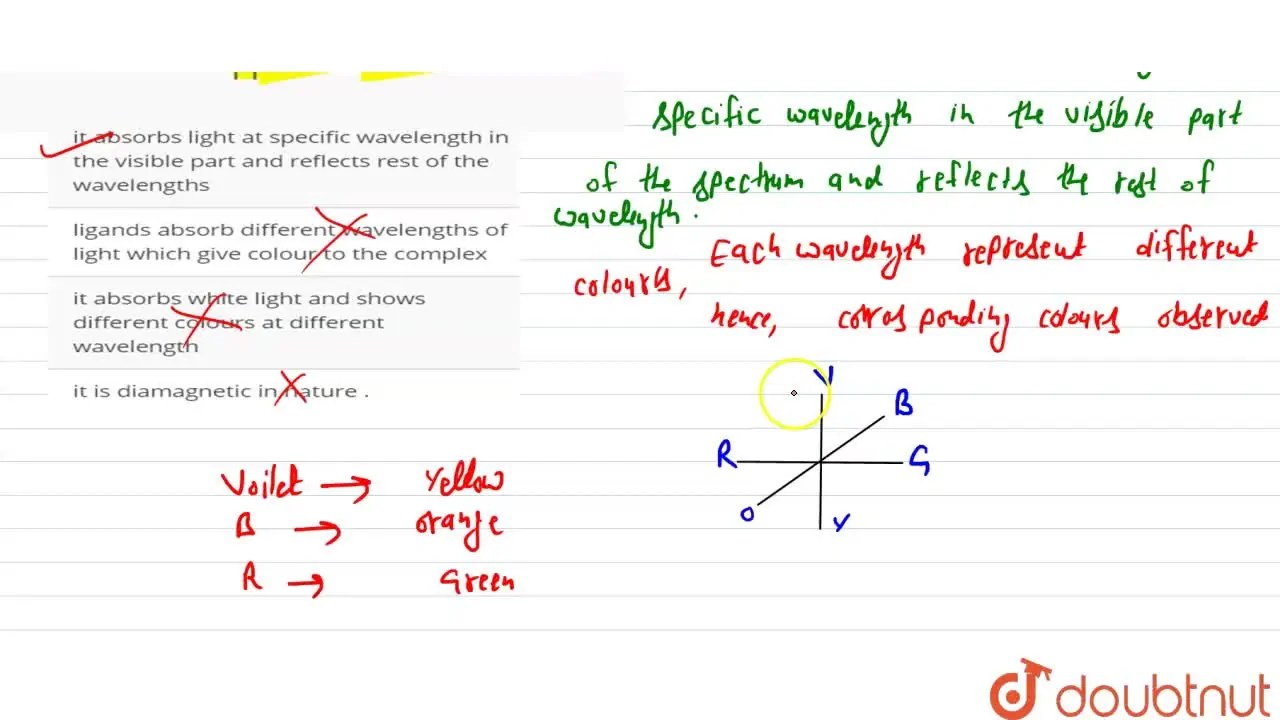 it absorbs light at specific wavelength in
the visible part and reflects rest of the
wavelengths
ligands absorb different wavelengths of
light which give colour to the complex
it absorbs white light and shows
different colours at different
wavelength
it is diamagnetic in nature .
Voilet → Yellow
B → orange
R → Green
specific wavelength in the visible part
of the spectrum and reflects the rest of
wavelength.
Each wavelength represent different
colours,
hence, corrosponding colours observed
V
B
R
G
O
Y
doubtnut